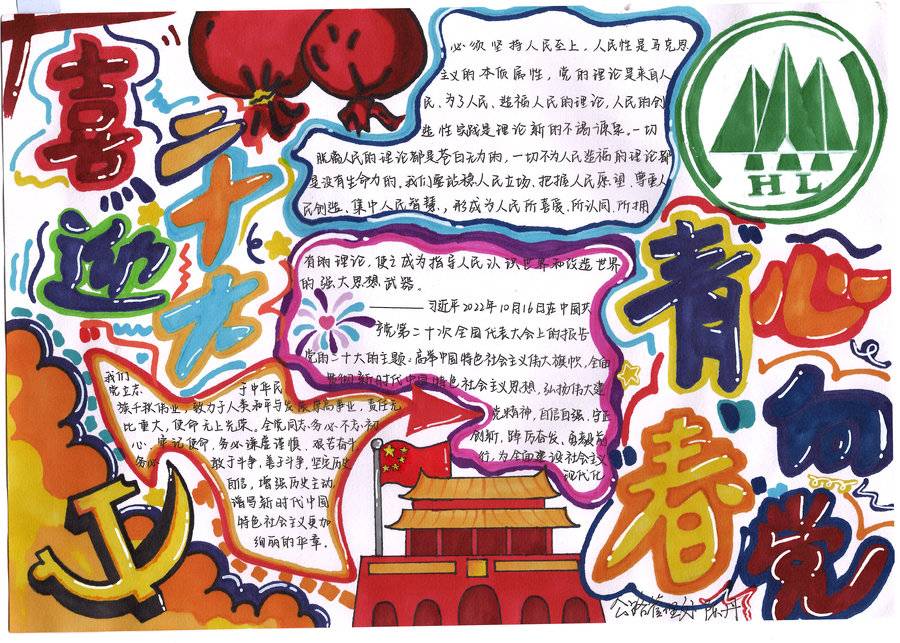 喜迎二十大
青春心向党
HL
必须坚持人民至上，人民性是马克思
主义的本质属性，党的理论是来自人
民、为了人民、造福人民的理论，人民的创
造性实践是理论新的不竭源泉。一切
脱离人民的理论都是苍白无力的，一切不为人民造福的理论都
是没有生命力的。我们要站稳人民立场、把握人民愿望、尊重人
民创造、集中人民智慧，形成为人民所喜爱、所认同、所拥
有的理论，使之成为指导人民认识世界和改造世界
的强大思想武器。
——习近平2022年10月16日在中国共
产党第二十次全国代表大会上的报告
党的二十大的主题：高举中国特色社会主义伟大旗帜，全面
贯彻新时代中国特色社会主义思想，弘扬伟大建
党精神，自信自强、守正
创新，踔厉奋发、勇毅前
行，为全面建设社会主义
现代化
我们
党立志 于中华民
族千秋伟业，致力于人类和平与发展崇高事业，责任无
比重大，使命无上光荣。全党同志务必不忘初
心、牢记使命，务必谦虚谨慎、艰苦奋斗，
务必 敢于斗争、善于斗争，坚定历史
自信，增强历史主动，
谱写新时代中国
特色社会主义更加
绚丽的华章。
公路管理